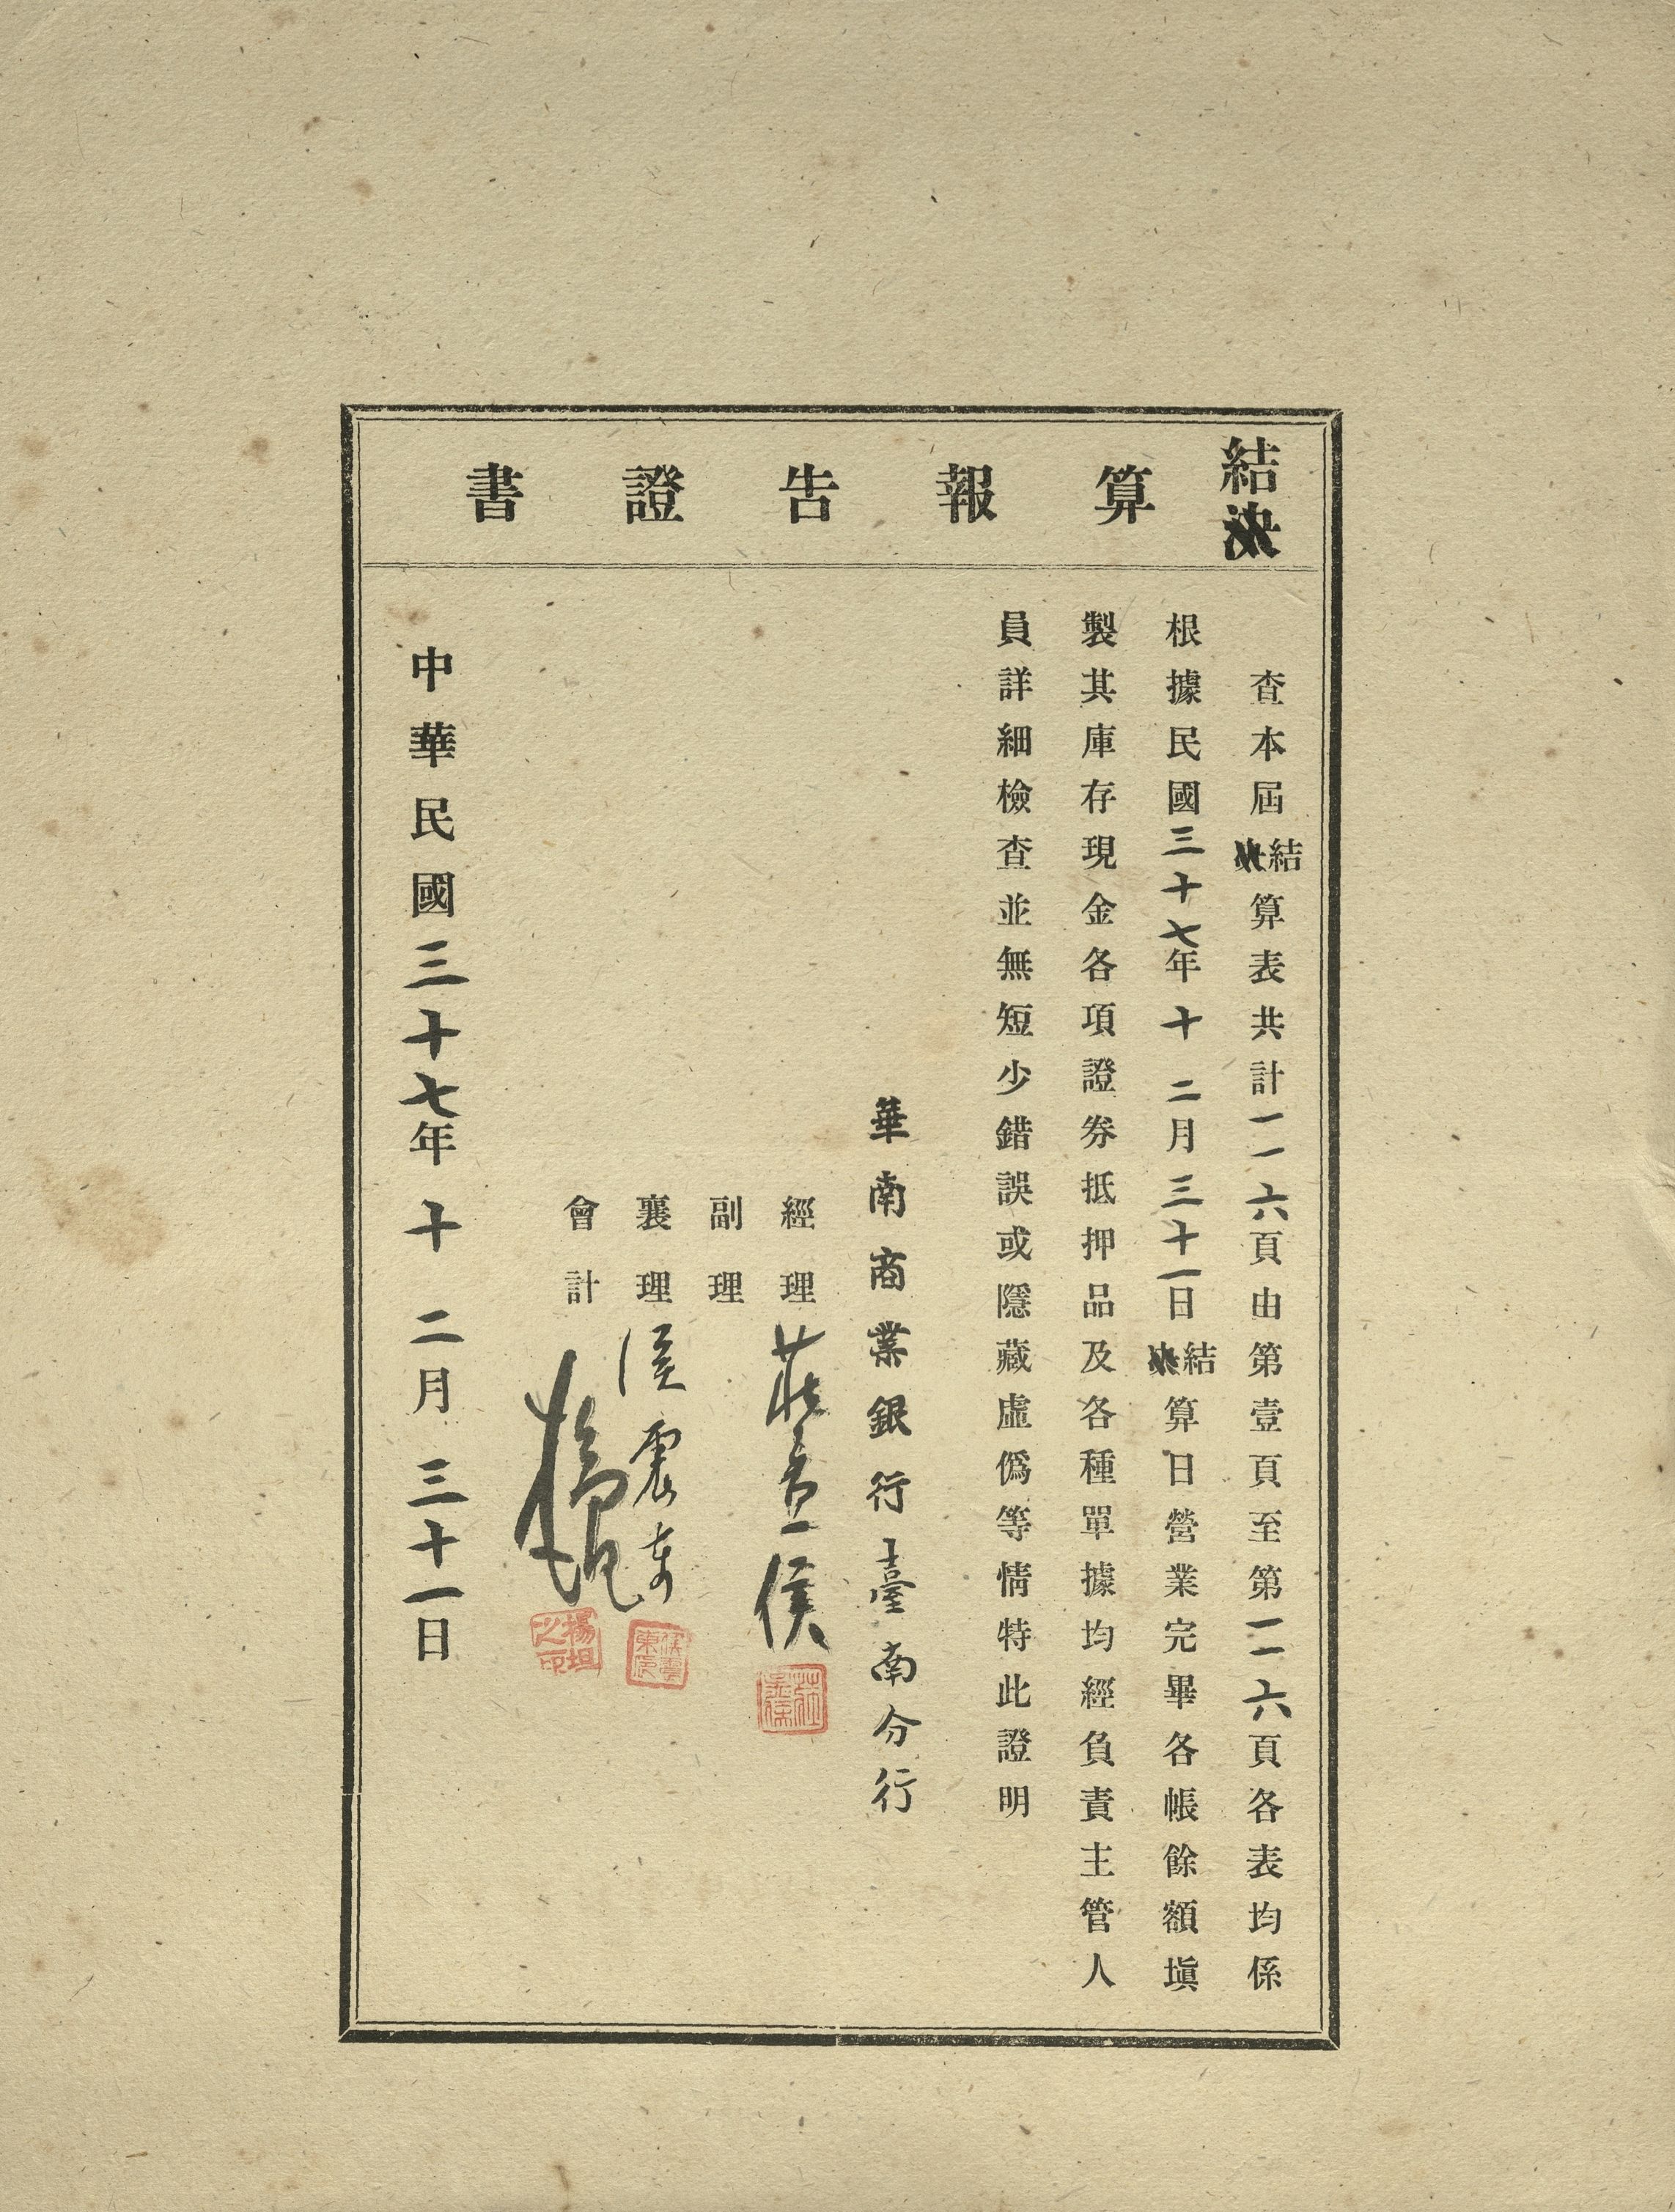 結算報告證書
查本屆結算表共計一一六頁由第壹頁至第一一六頁各表均係
根據民國三十七年十二月三十一日結算日營業完畢各帳餘額塡
製其庫存現金各項證券抵押品及各種單據均經負責主管人
員詳細檢查並無短少錯誤或隱藏虛僞等情特此證明
華南商業銀行臺南分行
經理 莊孟侯
副理
襄理 侯震東
會計 楊坦
楊坦之印
中華民國三十七年十二月三十一日